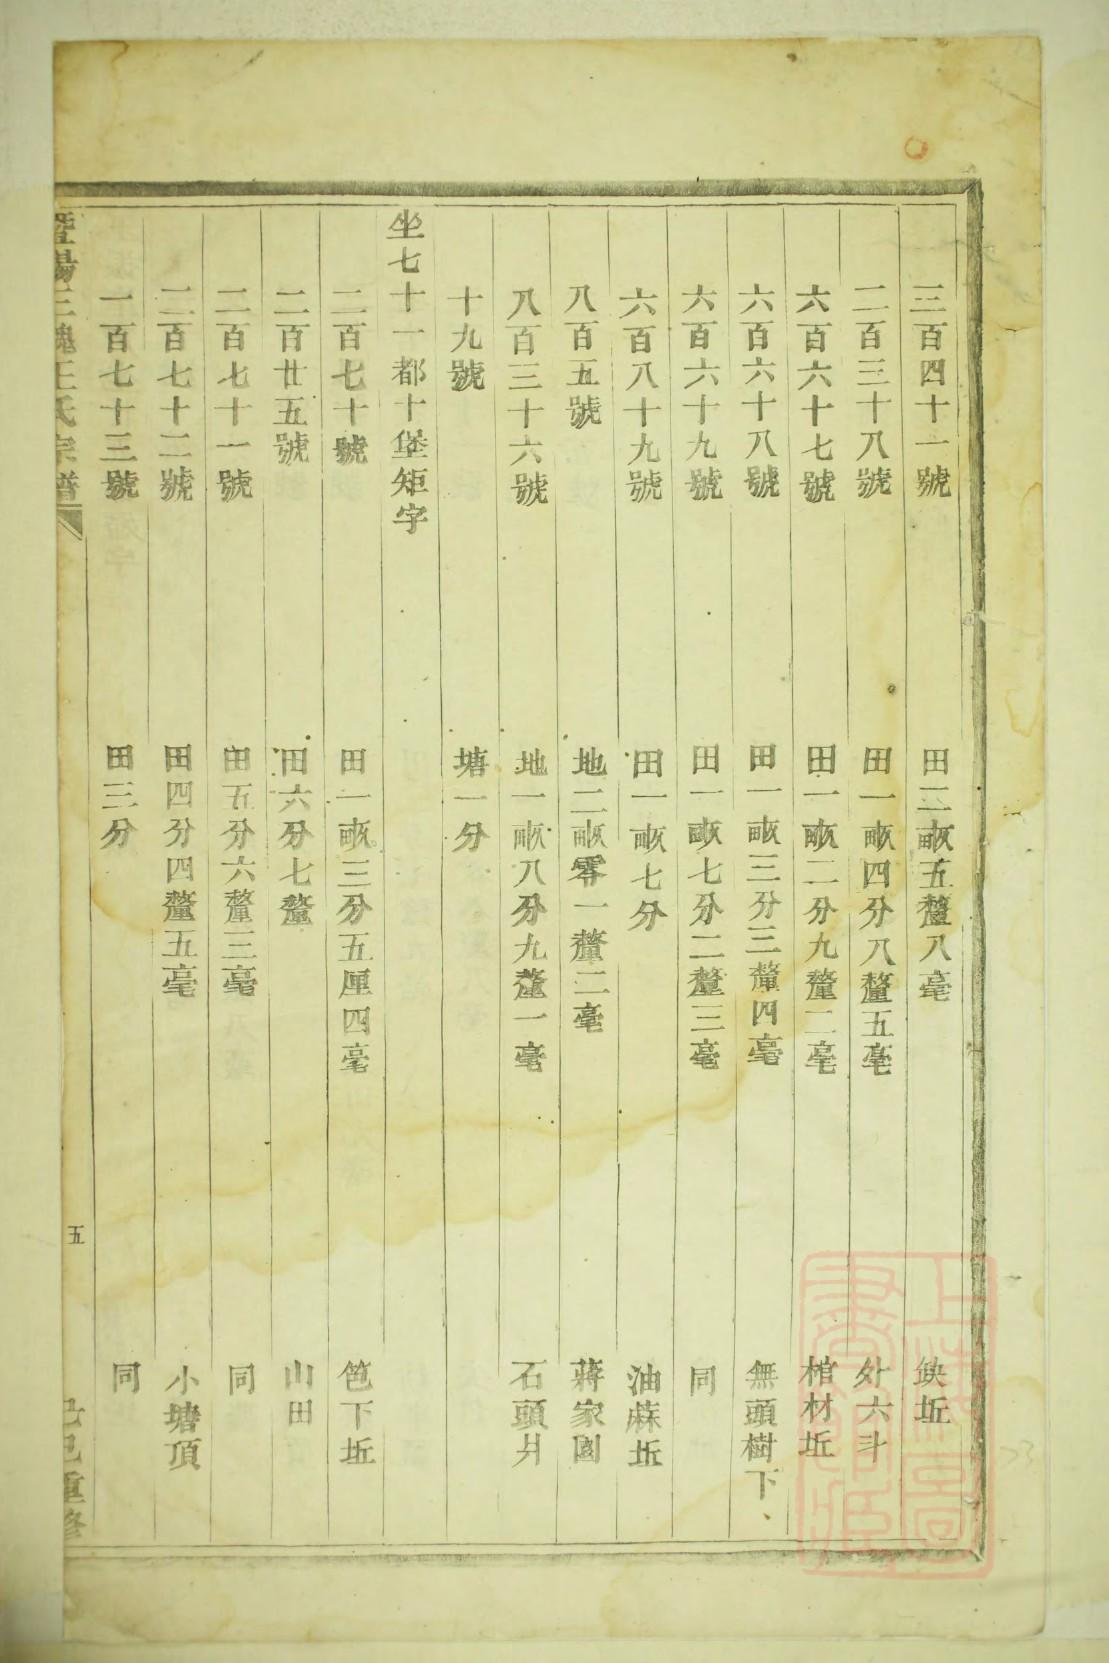 三百四十一號 田三畝五釐八毫 缺坵
二百三十八號 田一畝四分八釐五毫 外六斗
六百六十七號 田一畝二分九釐二毫 棺材坵
六百六十八號 田一畝三分三釐四毫 無頭樹下
六百六十九號 田一畝七分二釐三毫 同
六百八十九號 田一畝七分 油蔴坵
八百五號 地二畝零一釐二毫 蔣家園
八百三十六號 地一畝八分九釐一毫 石頭爿
十九號 塘一分
坐七十一都十堡矩字
二百七十號 田一畝三分五厘四毫 笆下坵
二百廿五號 田六分七釐 山田
二百七十一號 田五分六釐三毫 同
二百七十二號 田四分四釐五毫 小塘頂
一百七十三號 田三分 同
暨陽三槐王氏宗譜 五 己巳重修
上海圖書館藏